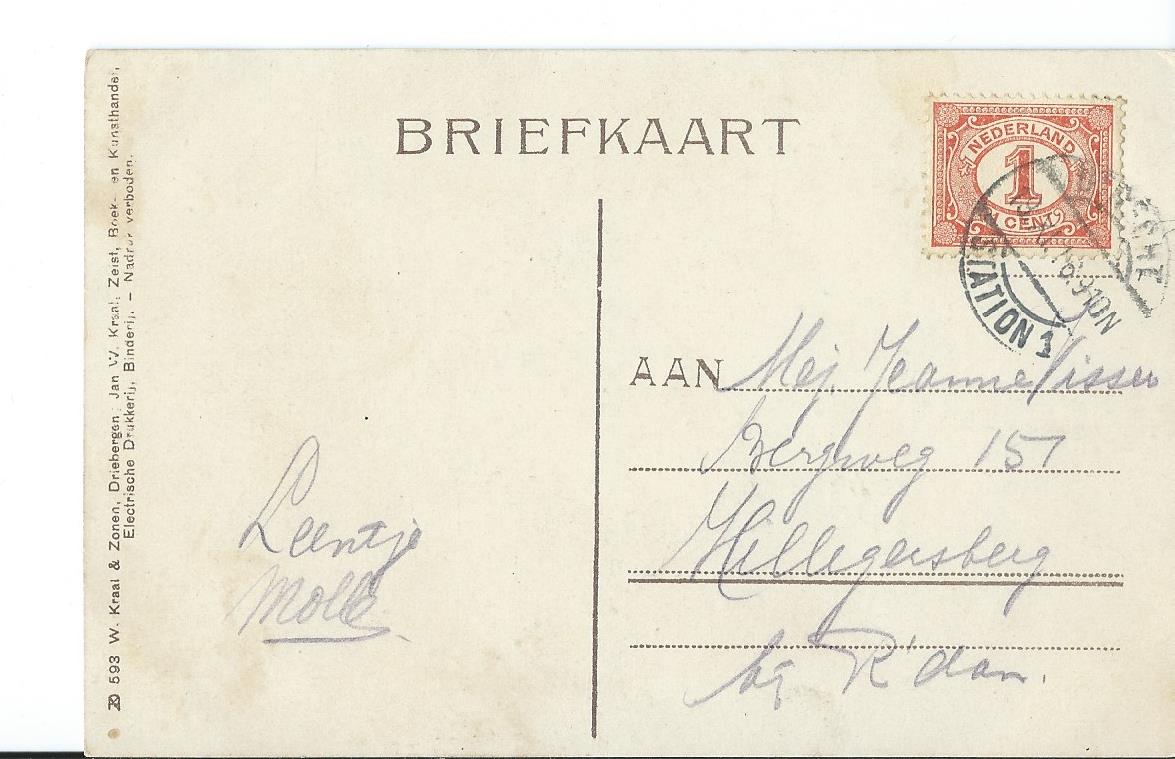 BRIEFKAART
NEDERLAND
1
1 CENT
UTRECHT
STATION 1
AAN Mej. Jeanne Visser
Bergweg 151
Hillegersberg
bij R'dam.
Leentje
Molle
593 W. Kraal & Zonen, Driebergen; Jan W. Kraal, Zeist, Boek- en Kunsthandel,
Electrische Drukkerij, Binderij. – Nadruk verboden.